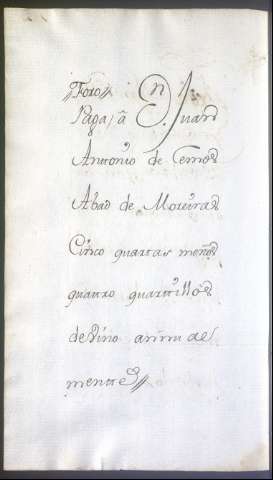 Foro
Paga, a Dn. Juan
Antonio de Lemos
Abad de Moreiras
Cinco quartas menos
quatro quartillos
de vino annual
mentte